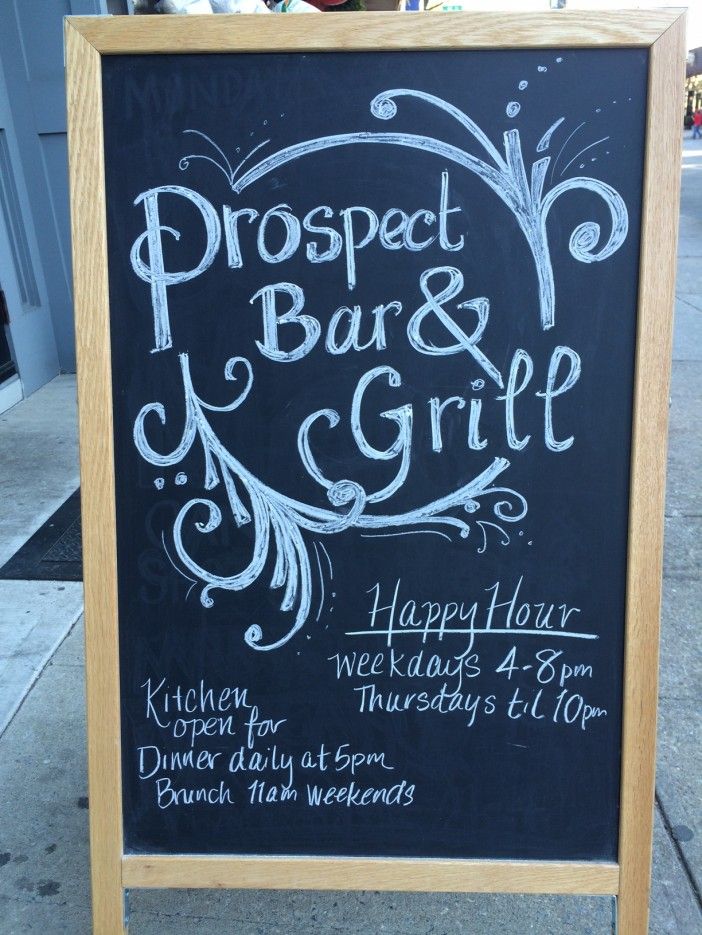 Prospect
Bar &
Grill
Happy Hour
Weekdays 4-8pm
Thursdays til 10pm
Kitchen
open for
Dinner daily at 5pm
Brunch 11am weekends